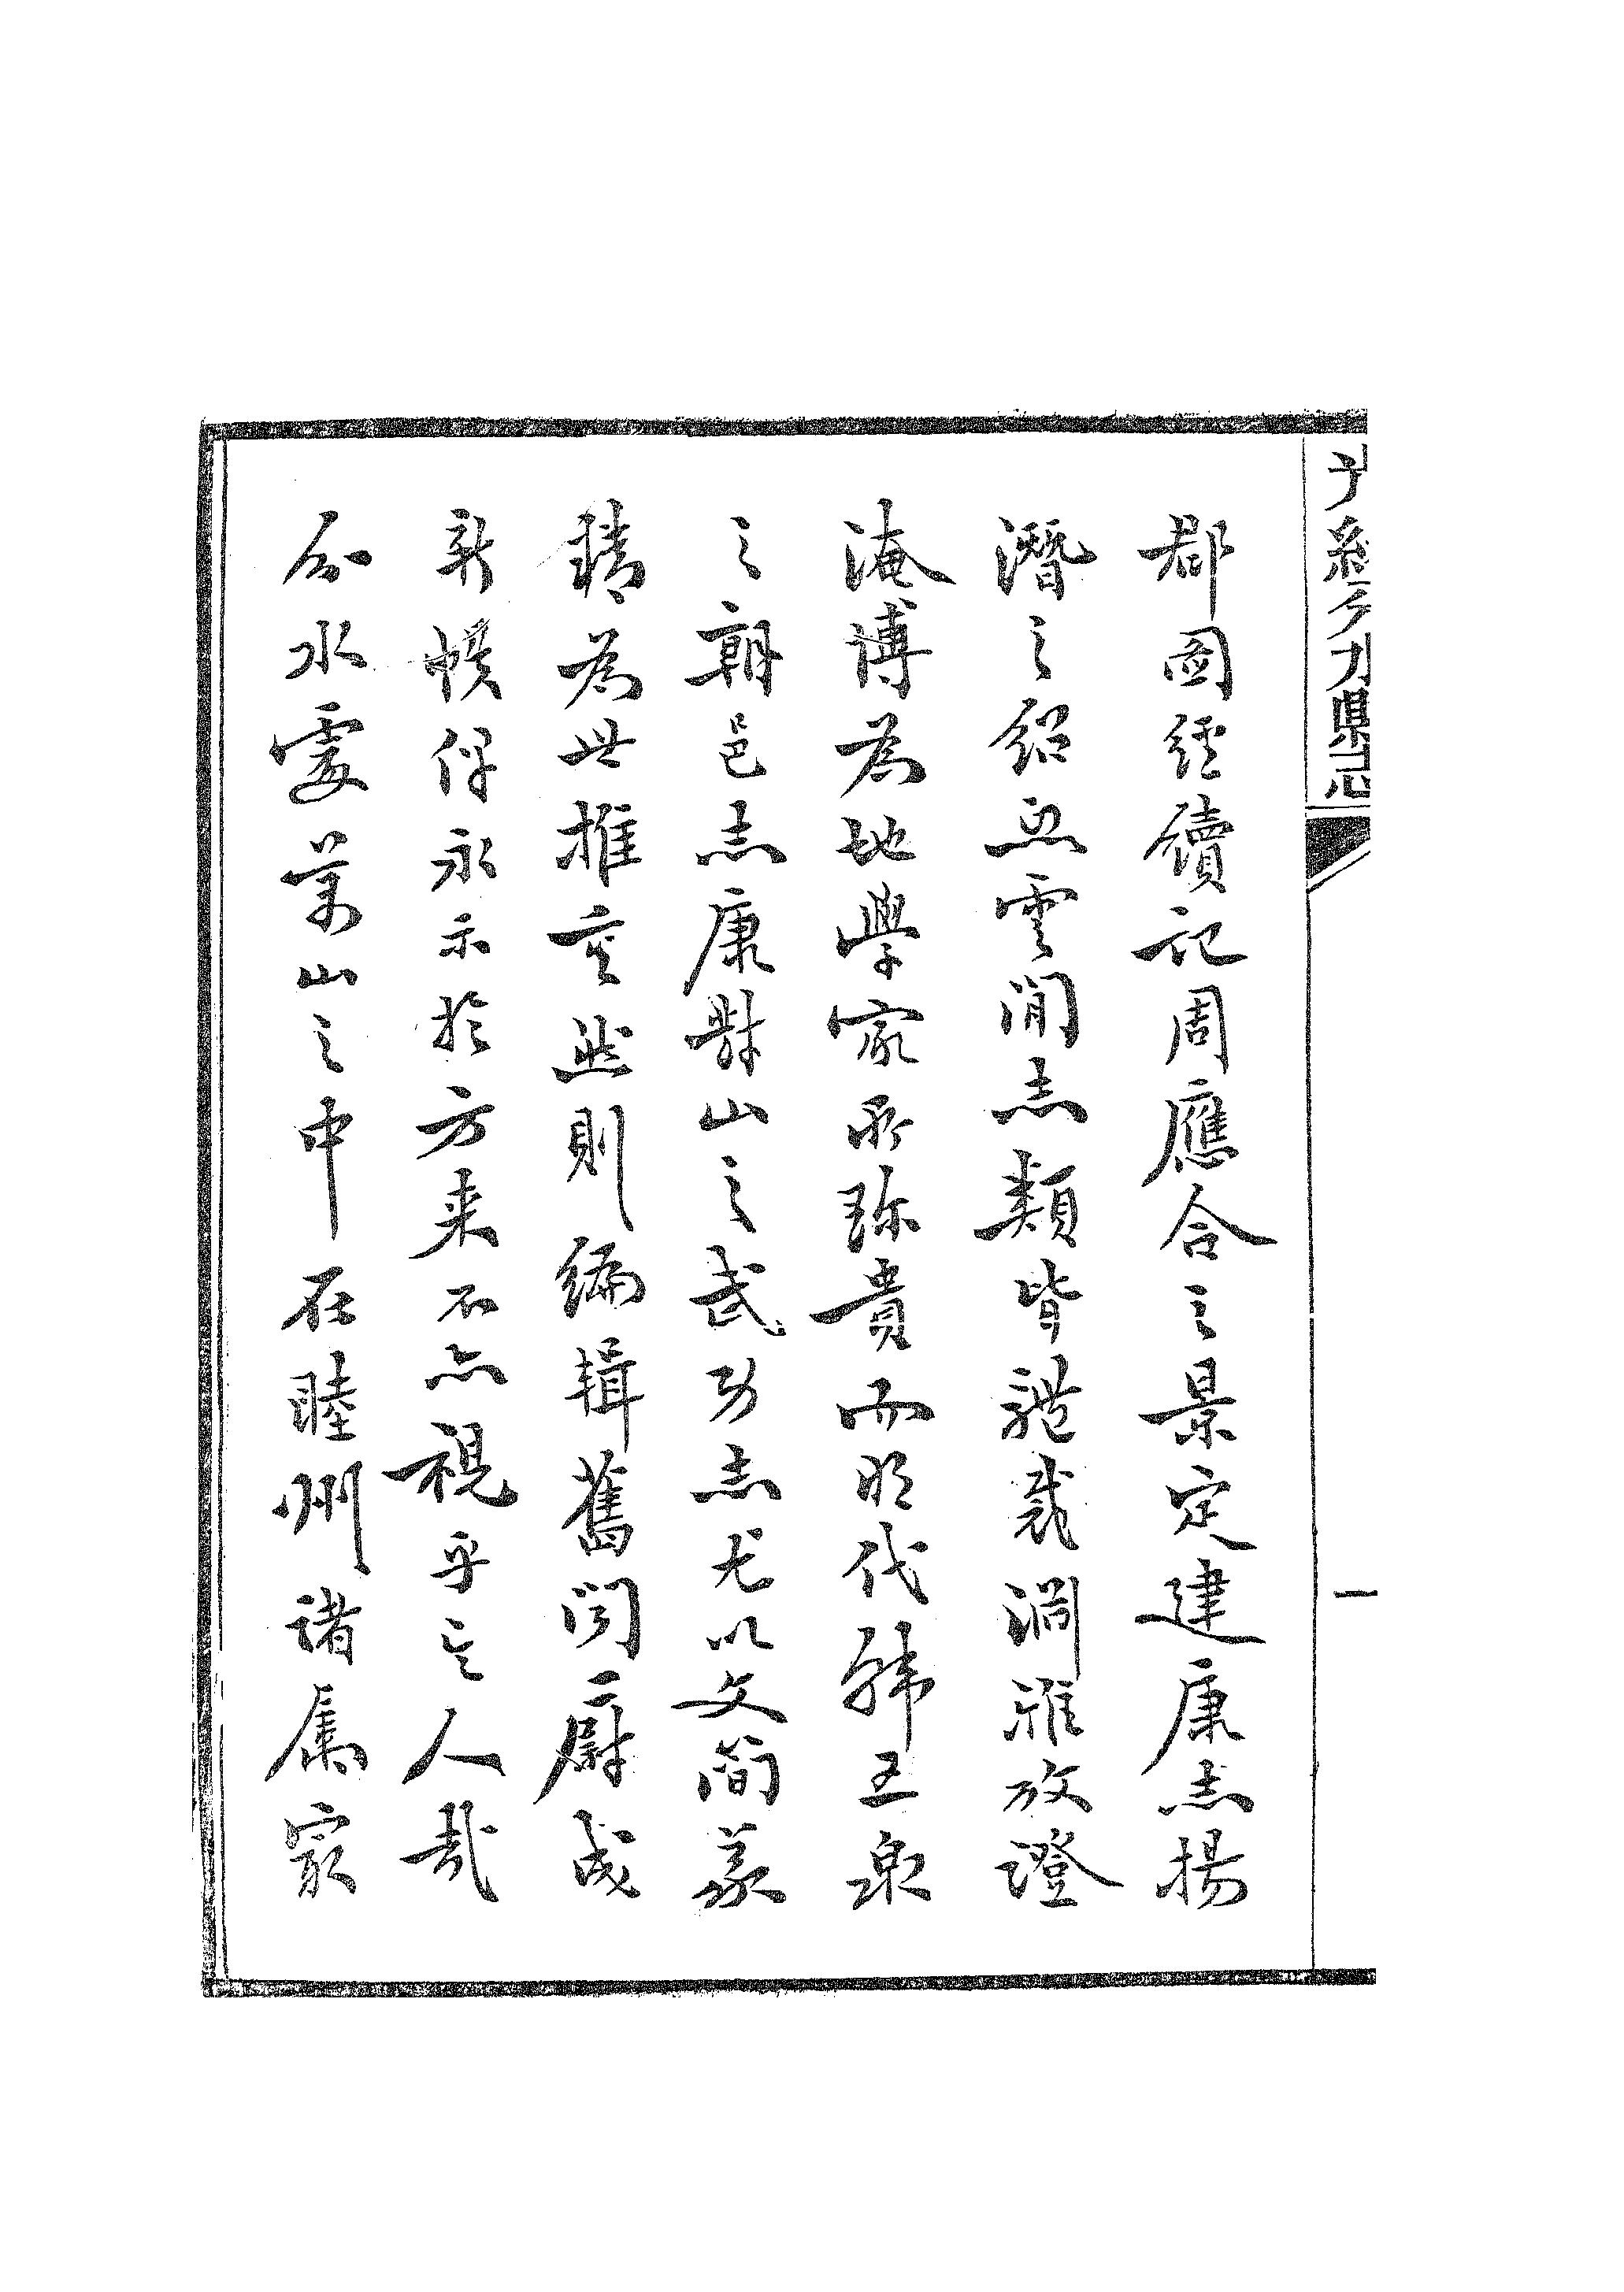 郡圖經續記周應合之景定建康志楊
潛之紹熙雲間志類皆體裁淵雅攷證
淹博為地學家所珍貴而明代韓五泉
之朝邑志康對山之武功志尤以文簡義
精為世推重然則編輯舊聞蔚成
新帙俾永示於方来不亦視乎其人哉
分水處萬山之中在睦州諸屬寂
一